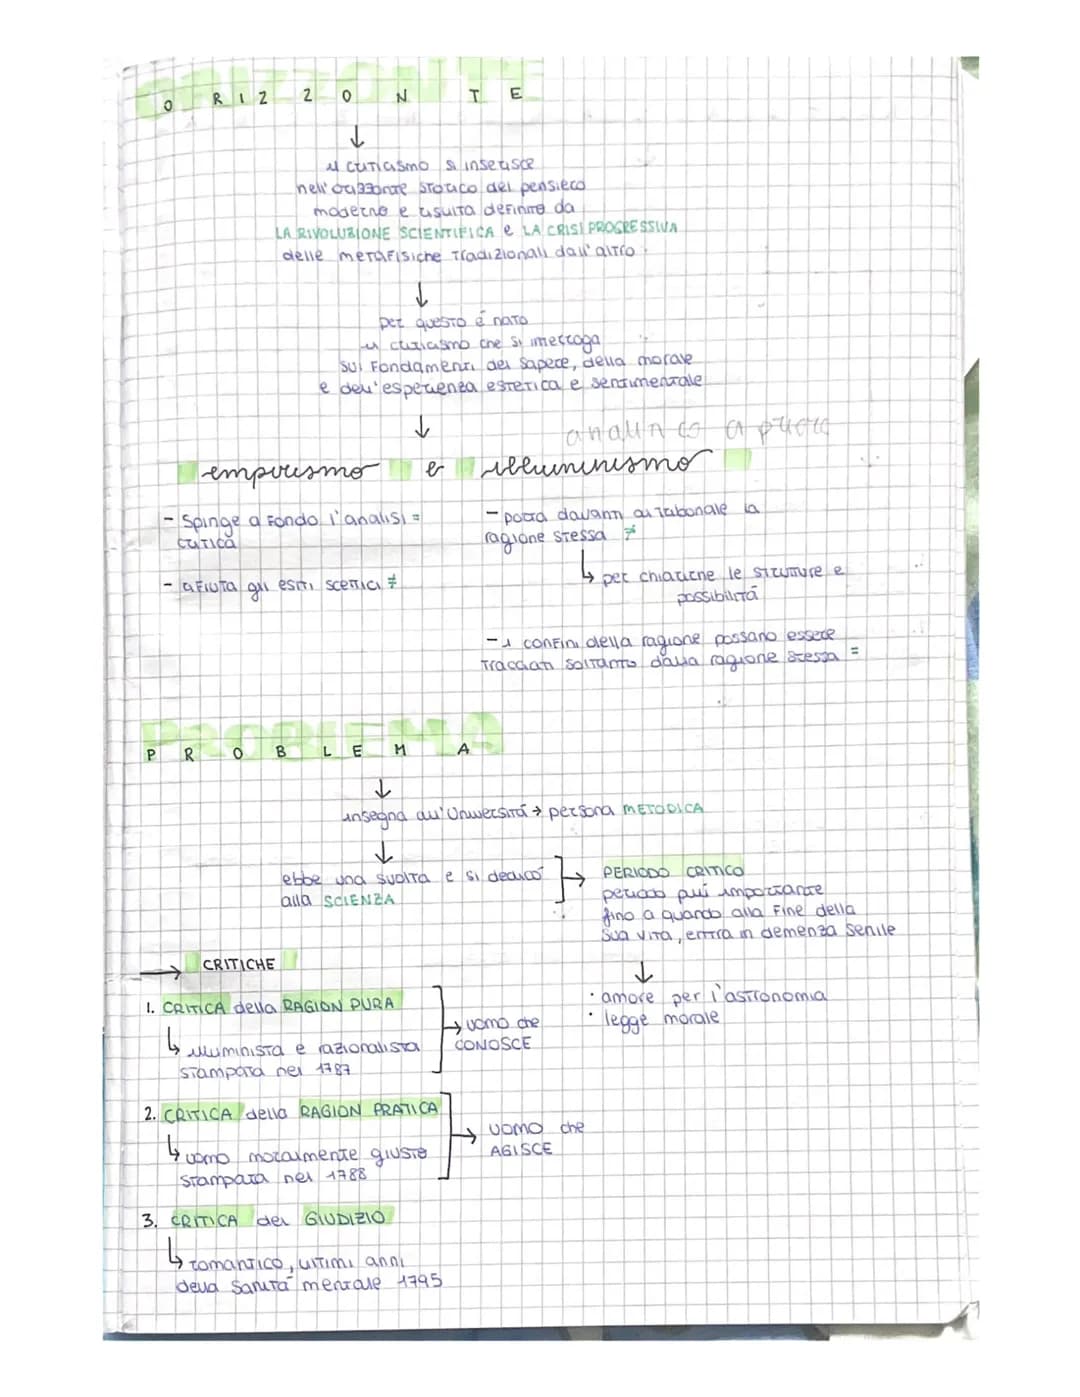 ORIZZONTE
O R I Z Z O N T E
↓
il criticismo si inserisce
nell'orizzonte storico del pensiero
moderno e risulta definito da
LA RIVOLUZIONE SCIENTIFICA e LA CRISI PROGRESSIVA
delle metafisiche tradizionali dall'altro.
↓
per questo è nato
un criticismo che si interroga
sui fondamenti del sapere, della morale
e dell'esperienza estetica e sentimentale
↓
analitico a priori
empirismo e illuminismo
- Spinge a fondo l'analisi =
critica
- rifiuta gli esiti scettici ≠
- porta davanti al tribonale la
ragione stessa ≠
↳ per chiarirne le strutture e
possibilità
- i confini della ragione possano essere
tracciati soltanto dalla ragione stessa =
PROBLEMA
P R O B L E M A
↓
insegna all'Università → persona METODICA
↓
ebbe una svolta e si dedicò
alla SCIENZA
→ PERIODO CRITICO
periodo più importante
fino a quando alla fine della
sua vita, entra in demenza senile
↓
· amore per l'astronomia
· legge morale
→ CRITICHE
1. CRITICA della RAGION PURA
↳ illuminista e razionalista
stampata nel 1787
→ uomo che
CONOSCE
2. CRITICA della RAGION PRATICA
↳ uomo moralmente giusto
stampata nel 1788
→ UOMO che
AGISCE
3. CRITICA del GIUDIZIO
↳ romantico, ultimi anni
della sanità mentale 1795